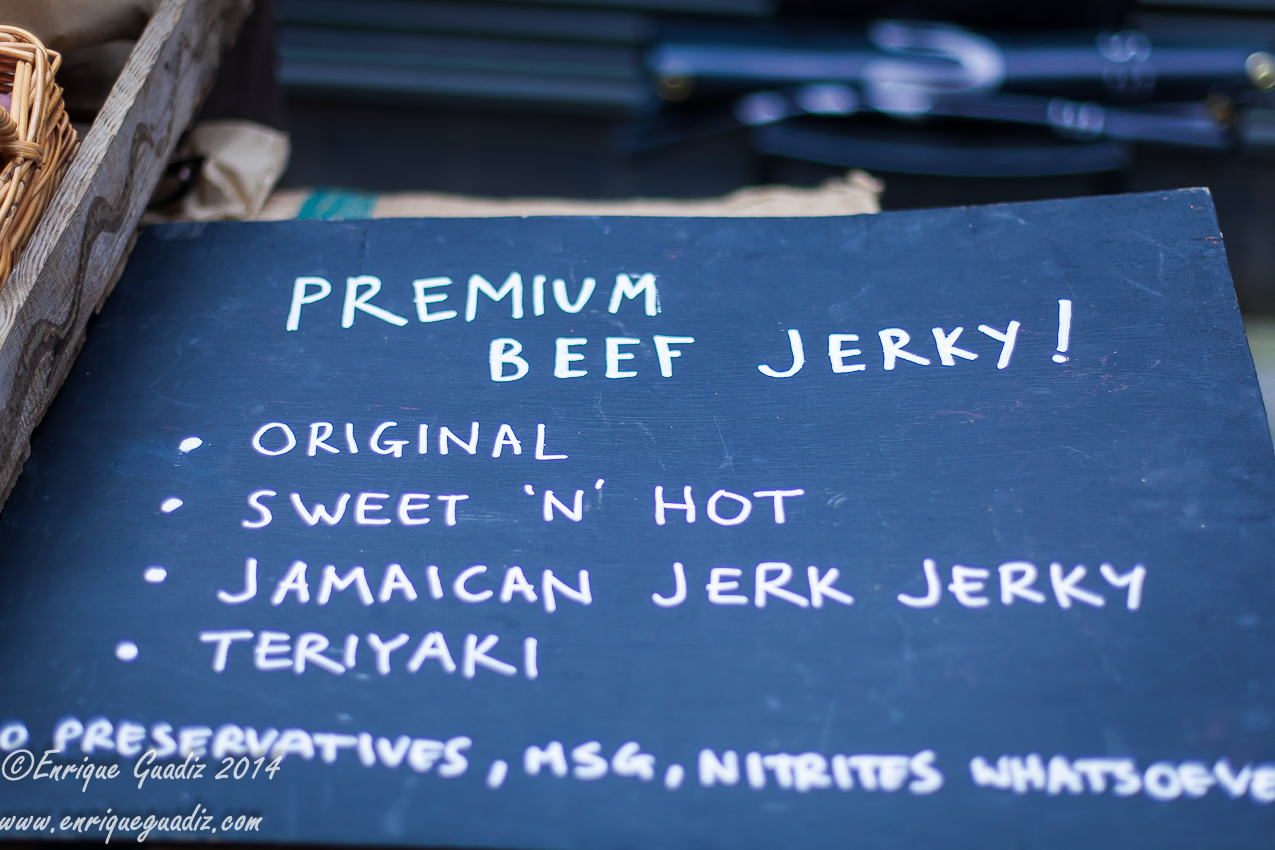 PREMIUM
BEEF JERKY!
• ORIGINAL
• SWEET 'N' HOT
• JAMAICAN JERK JERKY
• TERIYAKI
O PRESERVATIVES, MSG, NITRITES WHATSOEVE
©Enrique Guadiz 2014
www.enriqueguadiz.com